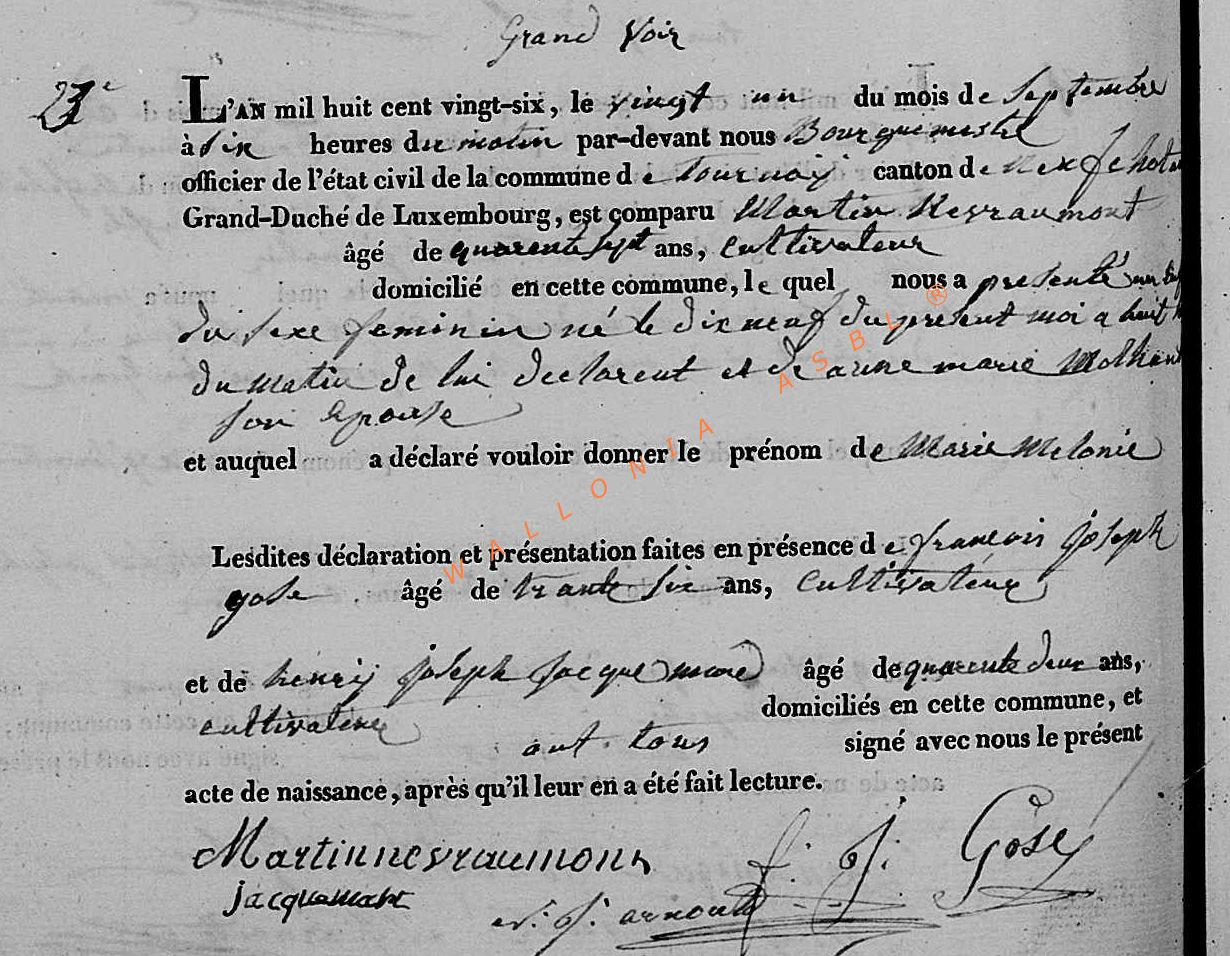 Grand Voir
23e L'AN mil huit cent vingt-six, le vingt un du mois de Septembre
à Six heures du matin par-devant nous Bourguemestre
officier de l'état civil de la commune de tournay canton de
Grand-Duché de Luxembourg, est comparu Martin Nevraumont
âgé de quarente Sept ans, cultivateur
domicilié en cette commune, le quel nous a presenté un
du Sexe feminin né le dix neuf du present moi a huit
du matin de lui declarent et de anne marie
son epouse
et auquel a déclaré vouloir donner le prénom de Marie Melonie
Lesdites déclaration et présentation faites en présence de francois joseph
gose âgé de trante Six ans, cultivateur
et de henry joseph Jacquemare âgé de quarente deux ans,
cultivateur domiciliés en cette commune, et
ont tous signé avec nous le présent
acte de naissance, après qu'il leur en a été fait lecture.
Martinnevraumont f. j. Gose
jacquemart arnould
WALLONIA ASBL ®